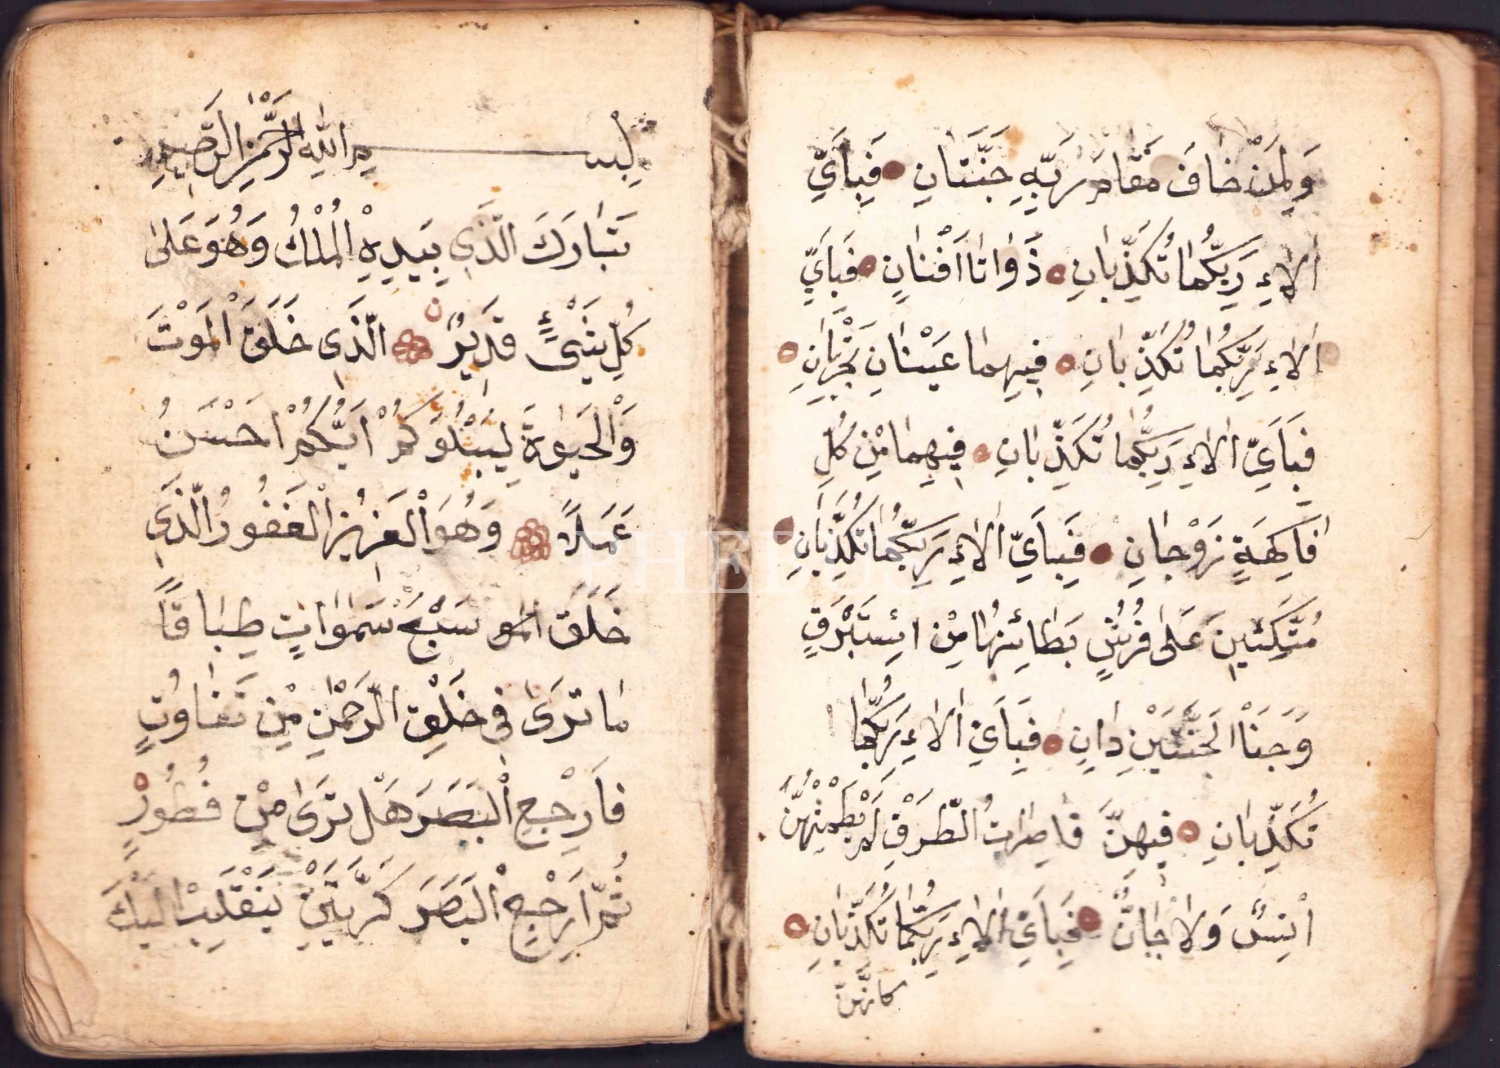 وَلِمَنْ خَافَ مَقَامَ رَبِّهِ جَنَّتَانِ فَبِاَيِّ
اٰلَاءِ رَبِّكُمَا تُكَذِّبَانِ ذَوَاتَا اَفْنَانٍ فَبِاَيِّ
اٰلَاءِ رَبِّكُمَا تُكَذِّبَانِ فِيهِمَا عَيْنَانِ تَجْرِيَانِ
فَبِاَيِّ اٰلَاءِ رَبِّكُمَا تُكَذِّبَانِ فِيهِمَا مِنْ كُلِّ
فَاكِهَةٍ زَوْجَانِ فَبِاَيِّ اٰلَاءِ رَبِّكُمَا تُكَذِّبَانِ
مُتَّكِئِينَ عَلَى فُرُشٍ بَطَائِنُهَا مِنْ اِسْتَبْرَقٍ
وَجَنَا الْجَنَّتَيْنِ دَانٍ فَبِاَيِّ اٰلَاءِ رَبِّكُمَا
تُكَذِّبَانِ فِيهِنَّ قَاصِرَاتُ الطَّرْفِ لَمْ يَطْمِثْهُنَّ
اِنْسٌ وَلَا جَانٌّ فَبِاَيِّ اٰلَاءِ رَبِّكُمَا تُكَذِّبَانِ
كانهن
بِسْمِ اللّٰهِ الرَّحْمٰنِ الرَّحِيمِ
تَبَارَكَ الَّذِي بِيَدِهِ الْمُلْكُ وَهُوَ عَلَى
كُلِّ شَيْءٍ قَدِيرٌ الَّذِي خَلَقَ الْمَوْتَ
وَالْحَيٰوةَ لِيَبْلُوَكُمْ اَيُّكُمْ اَحْسَنُ
عَمَلًا وَهُوَ الْعَزِيزُ الْغَفُورُ الَّذِي
خَلَقَ سَبْعَ سَمٰوَاتٍ طِبَاقًا
مَا تَرَى فِي خَلْقِ الرَّحْمٰنِ مِنْ تَفَاوُتٍ
فَارْجِعِ الْبَصَرَ هَلْ تَرَى مِنْ فُطُورٍ
ثُمَّ ارْجِعِ الْبَصَرَ كَرَّتَيْنِ يَنْقَلِبْ اِلَيْكَ